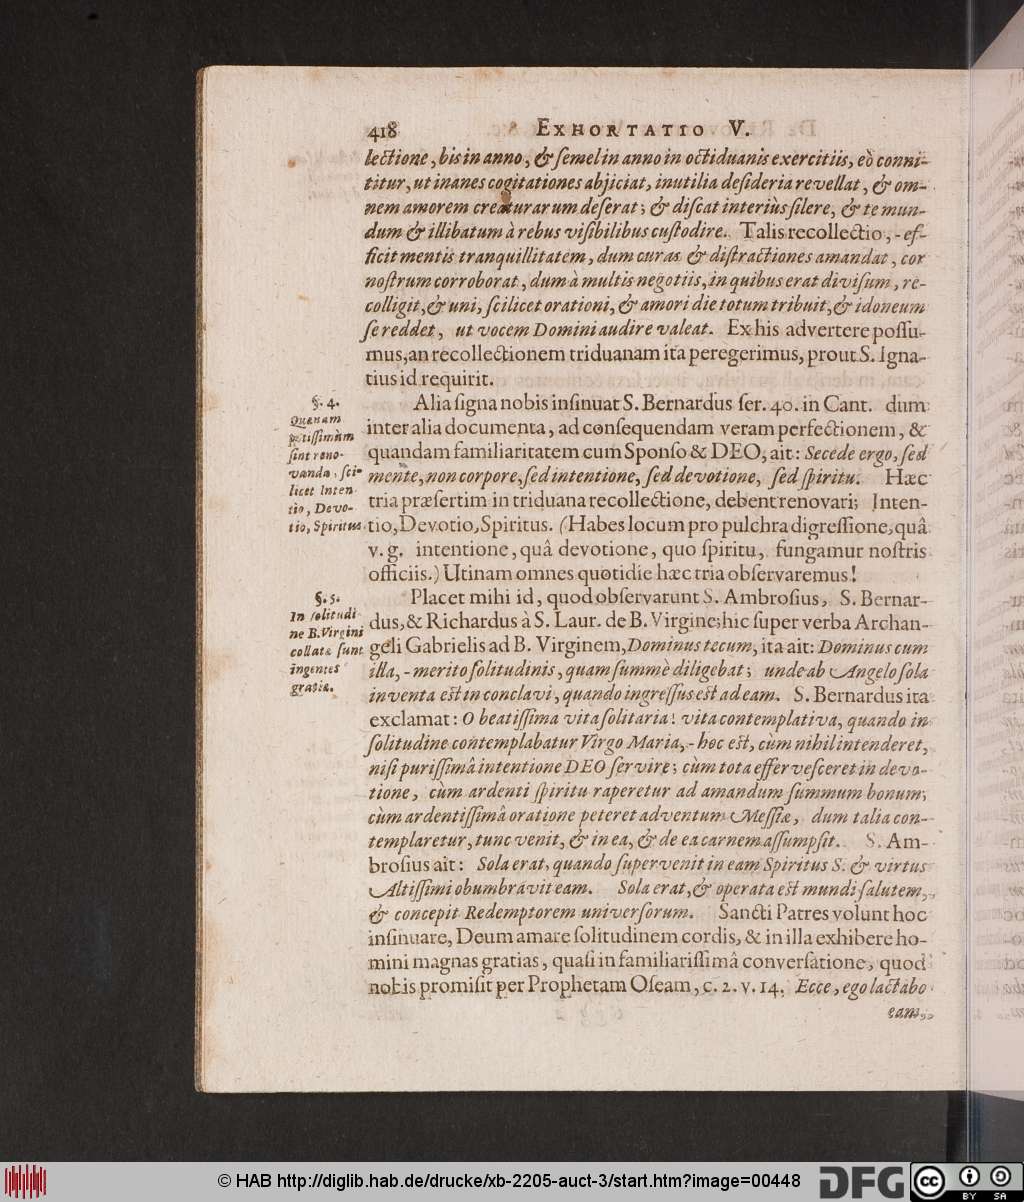 418 EXHORTATIO V.
lectione, bis in anno, & semel in anno in octiduanis exercitiis, eò conni-
titur, ut inanes cogitationes abjiciat, inutilia desideria revellat, & om-
nem amorem creaturarum deserat; & discat interiùs silere, & te mun-
dum & illibatum à rebus visibilibus custodire. Talis recollectio, - ef-
ficit mentis tranquillitatem, dum curas & distractiones amandat, cor
nostrum corroborat, dum à multis negotiis, in quibus erat divisum, re-
colligit, & uni, scilicet orationi, & amori die totum tribuit, & idoneum
se reddet, ut vocem Domini audire valeat. Ex his advertere possu-
mus, an recollectionem triduanam ita peregerimus, prout S. Igna-
tius id requirit.
§. 4.
Quænam
potissimùm
sint reno-
vanda, sci-
licet Inten-
tio, Devo-
tio, Spiritus.
Alia signa nobis insinuat S. Bernardus ser. 40. in Cant. dum
inter alia documenta, ad consequendam veram perfectionem, &
quandam familiaritatem cum Sponso & DEO, ait: Secede ergo, sed
mente, non corpore, sed intentione, sed devotione, sed spiritu. Hæc
tria præsertim in triduana recollectione, debent renovari; Inten-
tio, Devotio, Spiritus. (Habes locum pro pulchra digressione, quâ
v. g. intentione, quâ devotione, quo spiritu, fungamur nostris
officiis.) Utinam omnes quotidie hæc tria observaremus!
§. 5.
In solitudi-
ne B. Virgini
collatæ sunt
ingentes
gratiæ.
Placet mihi id, quod observarunt S. Ambrosius, S. Bernar-
dus, & Richardus à S. Laur. de B. Virgine; hic super verba Archan-
geli Gabrielis ad B. Virginem, Dominus tecum, ita ait: Dominus cum
illa, - merito solitudinis, quam summè diligebat; unde ab Angelo sola
inventa est in conclavi, quando ingressus est ad eam. S. Bernardus ita
exclamat: O beatissima vita solitaria! vita contemplativa, quando in
solitudine contemplabatur Virgo Maria, - hoc est, cùm nihil intenderet,
nisi purissimâ intentione DEO servire; cùm tota effervesceret in devo-
tione, cùm ardenti spiritu raperetur ad amandum summum bonum;
cùm ardentissimâ oratione peteret adventum Messiæ, dum talia con-
templaretur, tunc venit, & in ea, & de ea carnem assumpsit. S. Am-
brosius ait: Sola erat, quando supervenit in eam Spiritus S. & virtus
Altissimi obumbravit eam. Sola erat, & operata est mundi salutem,
& concepit Redemptorem universorum. Sancti Patres volunt hoc
insinuare, Deum amare solitudinem cordis, & in illa exhibere ho-
mini magnas gratias, quasi in familiarissimâ conversatione, quod
nobis promisit per Prophetam Oseam, c. 2. v. 14. Ecce, ego lactabo
eam,
© HAB http://diglib.hab.de/drucke/xb-2205-auct-3/start.htm?image=00448
DFG
cc
BY SA